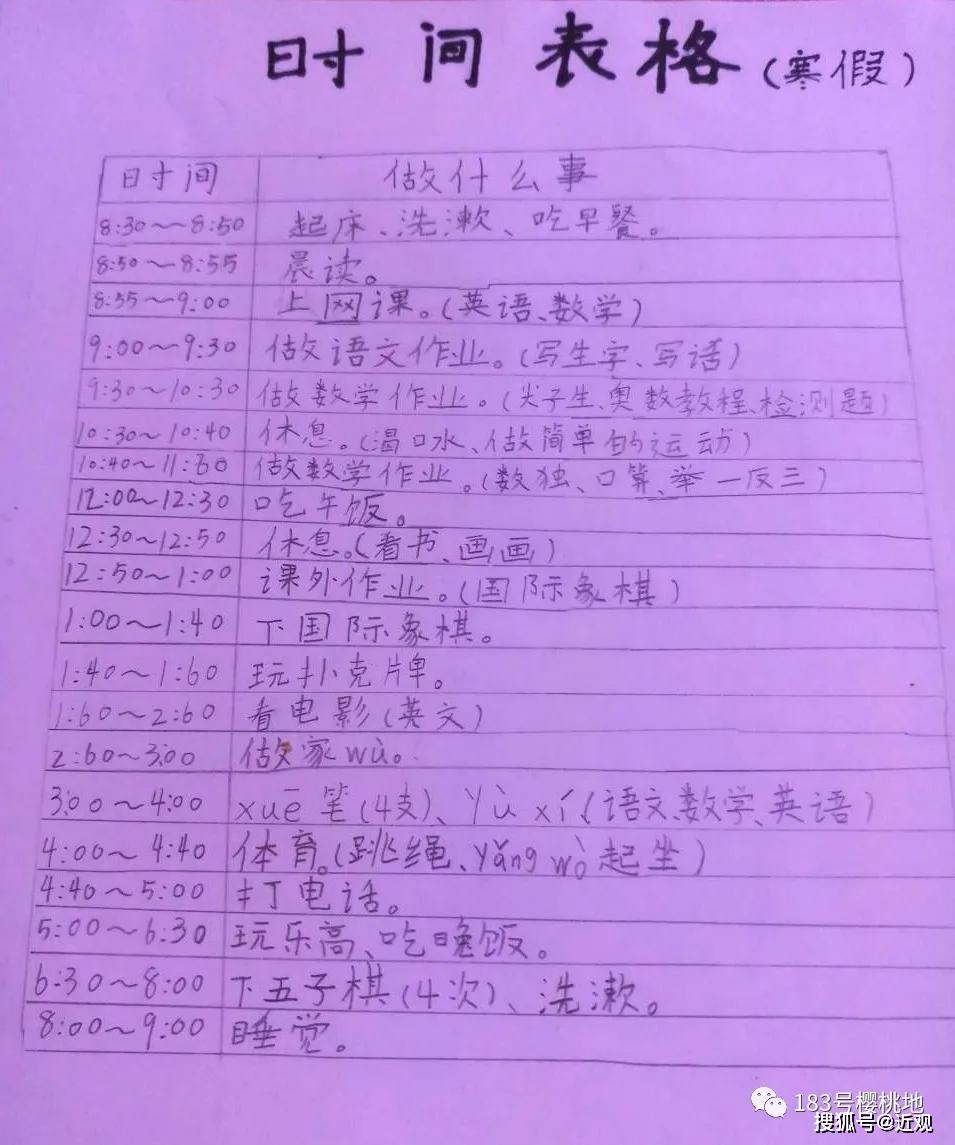 时间表格(寒假)
时间 做什么事
8:30～8:50 起床、洗漱、吃早餐。
8:50～8:55 晨读。
8:55～9:00 上网课。(英语、数学)
9:00～9:30 做语文作业。(写生字、写话)
9:30～10:30 做数学作业。(尖子生、奥数教程、检测题)
10:30～10:40 休息。(渴口水、做简单的运动)
10:40～11:60 做数学作业。(数独、口算、举一反三)
12:00～12:30 吃午饭。
12:30～12:50 休息。(看书、画画)
12:50～1:00 课外作业。(国际象棋)
1:00～1:40 下国际象棋。
1:40～1:60 玩扑克牌。
1:60～2:60 看电影(英文)
2:60～3:00 做家wù。
3:00～4:00 xuē笔(4支)、Yù xí(语文、数学、英语)
4:00～4:40 体育。(跳绳、Yǎng wò起坐)
4:40～5:00 打电话。
5:00～6:30 玩乐高、吃晚饭。
6:30～8:00 下五子棋(4次)、洗漱。
8:00～9:00 睡觉。
183号樱桃地
搜狐号@近观